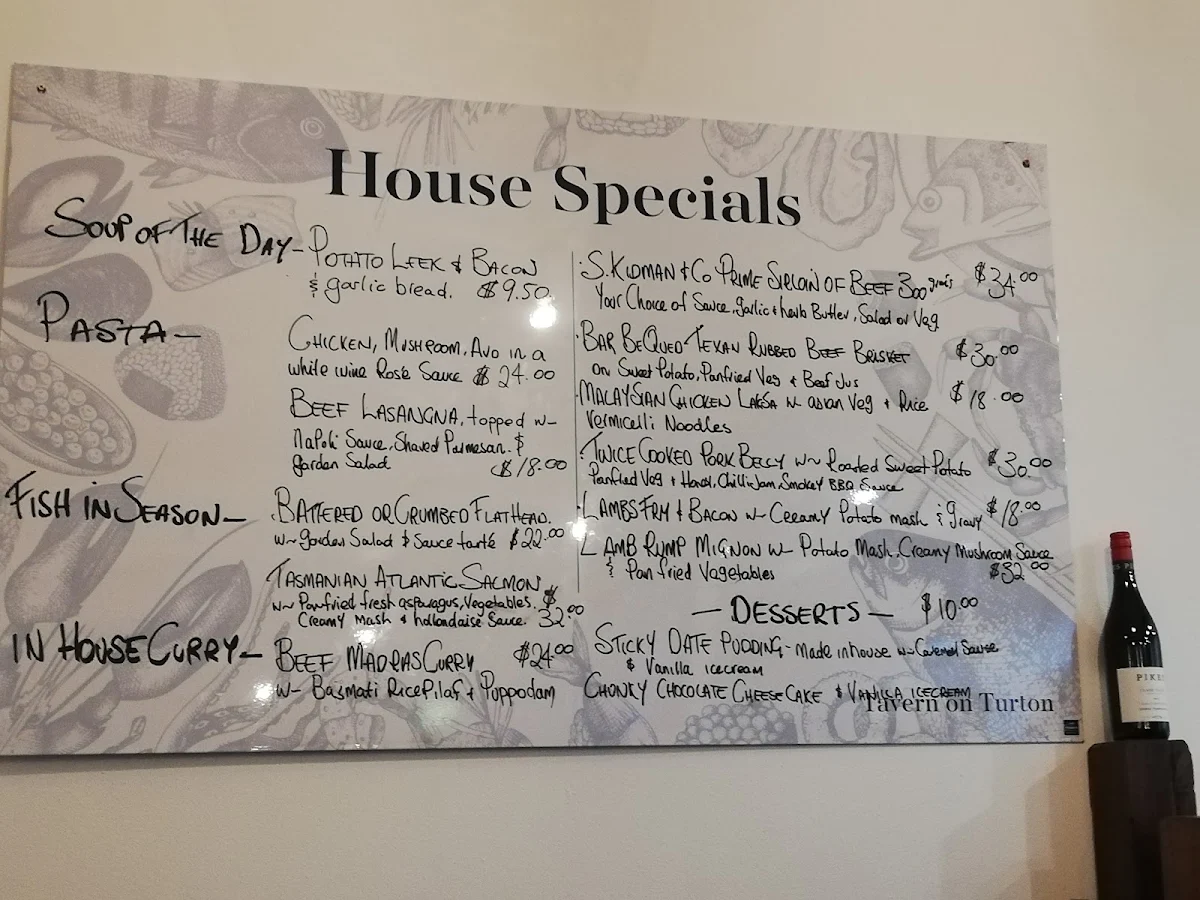 House Specials
SOUP OF THE DAY - POTATO LEEK & BACON
& garlic bread. $9.50
PASTA -
CHICKEN, MUSHROOM, AVO in a
white wine Rosé Sauce $24.00
BEEF LASANGNA, topped w~
Napoli Sauce, Shaved Parmesan &
garden Salad $18.00
FISH IN SEASON -
BATTERED OR CRUMBED FLATHEAD.
w~ garden Salad & Sauce tarté $22.00
TASMANIAN ATLANTIC SALMON
w~ Panfried fresh asparagus, Vegetables. $
Creamy Mash & hollandaise Sauce. 32.00
IN HOUSE CURRY -
BEEF MADRAS CURRY $24.00
w~ Basmati Rice Pilaf & Puppodam
S. KIDMAN & CO PRIME SIRLOIN OF BEEF 300 grms $34.00
Your Choice of Sauce, garlic & herb Butter, Salad or Veg
BAR BEQUED TEXAN RUBBED BEEF BRISKET $30.00
on Sweet Potato, Panfried Veg & Beef Jus
MALAYSIAN CHICKEN LAKSA w~ asian Veg & Rice $18.00
Vermicelli Noodles
TWICE COOKED PORK BELLY w~ Roasted Sweet Potato $30.00
Panfried Veg & Chilli Jam, Smokey BBQ Sauce
LAMBS FRY & BACON w~ Creamy Potato mash & gravy $18.00
LAMB RUMP MIGNON w~ Potato Mash, Creamy Mushroom Sauce
& Pan fried Vagetables $32.00
— DESSERTS — $10.00
STICKY DATE PUDDING - Made inhouse w~ Sauce
& Vanilla icecream
CHONKY CHOCOLATE CHEESECAKE & VANILLA ICECREAM
Tavern on Turton